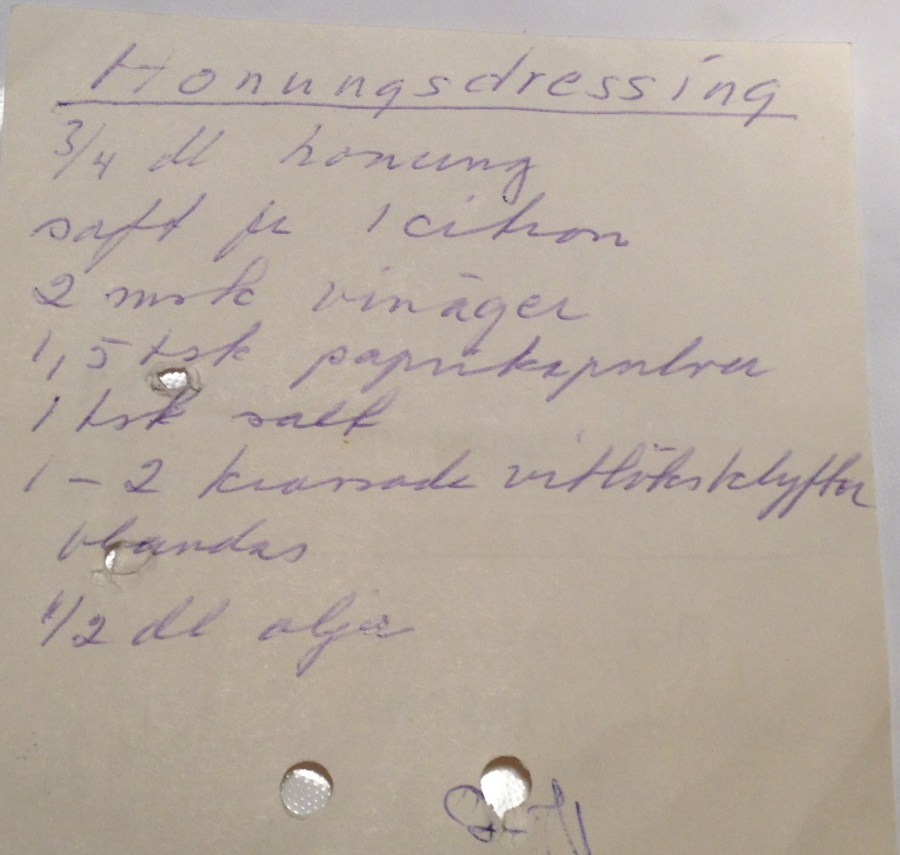 Honungsdressing
3/4 dl honung
saft fr 1 citron
2 msk vinäger
1,5 tsk paprikapulver
1 tsk salt
1-2 krossade vitlöksklyftor
blandas
1/2 dl olja